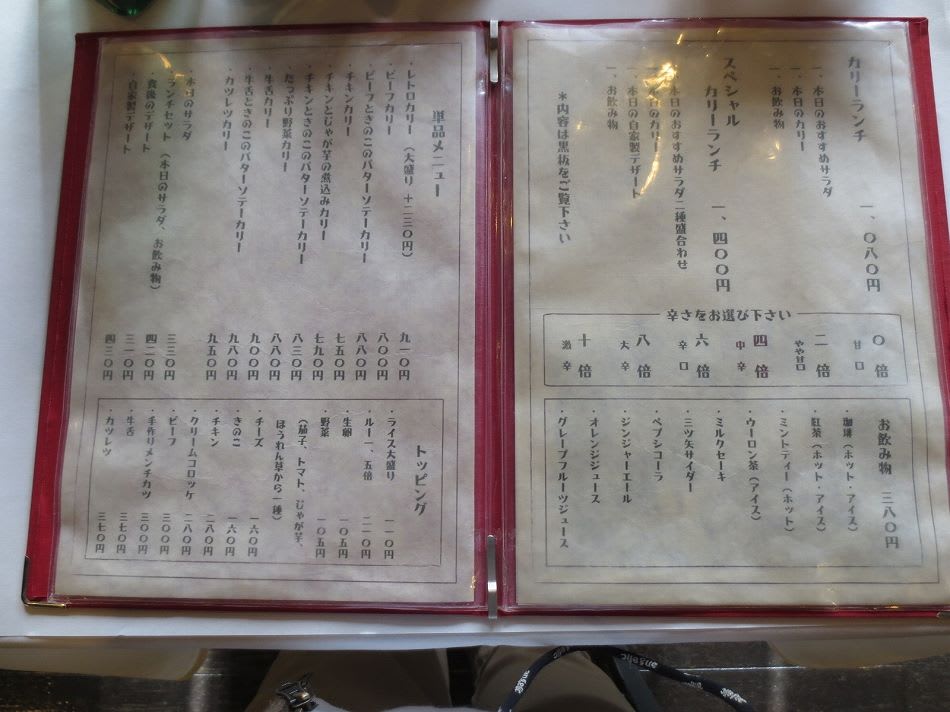 カリーランチ 一、〇八〇円
一、本日のおすすめサラダ
一、本日のカリー
一、お飲み物
スペシャル
カリーランチ 一、四〇〇円
一、本日のおすすめサラダ二種盛合わせ
一、本日のカリー
一、本日の自家製デザート
一、お飲み物
＊内容は黒板をご覧下さい
辛さをお選び下さい
〇倍 甘口
二倍 やや甘口
四倍 中辛
六倍 辛口
八倍 大辛
十倍 激辛
お飲み物 三八〇円
・珈琲（ホット・アイス）
・紅茶（ホット・アイス）
・ミントティー（ホット）
・ウーロン茶（アイス）
・ミルクセーキ
・三ツ矢サイダー
・ペプシコーラ
・ジンジャーエール
・オレンジジュース
・グレープフルーツジュース
単品メニュー
・レトロカリー（大盛り＋二三〇円） 九一〇円
・ビーフカリー 八〇〇円
・ビーフときのこのバターソテーカリー 八八〇円
・チキンカリー 七五〇円
・チキンとじゃが芋の煮込みカリー 七九〇円
・チキンときのこのバターソテーカリー 八三〇円
・たっぷり野菜カリー 八八〇円
・牛舌カリー 九〇〇円
・牛舌ときのこのバターソテーカリー 九八〇円
・カツレツカリー 九五〇円
・本日のサラダ 三三〇円
・ランチセット（本日のサラダ、お飲み物） 四二〇円
・食後のデザート 三一〇円
・自家製デザート 四三〇円
トッピング
・ライス大盛り 一一〇円
・ルー一、五倍 二一〇円
・生卵 一〇五円
・野菜 一〇五円
（茄子、トマト、じゃが芋、
ほうれん草から一種）
・チーズ 一六〇円
・きのこ 一六〇円
・チキン 二八〇円
・クリームコロッケ 二八〇円
・ビーフ 三〇〇円
・手作りメンチカツ 三〇〇円
・牛舌 三七〇円
・カツレツ 三七〇円